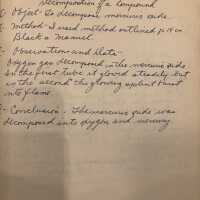 Decomposition of a Compound
Object - To decompose mercuric oxide.
Method - I used method outlined p. 14 in
Black's Manual
Observations and Data -
Oxygen gas decomposed in the mercuric oxide
In the first tube it glowed steadily but
in the second the glowing splint burst
into flame.
Conclusion - The mercuric oxide was
decomposed into oxygen and mercury